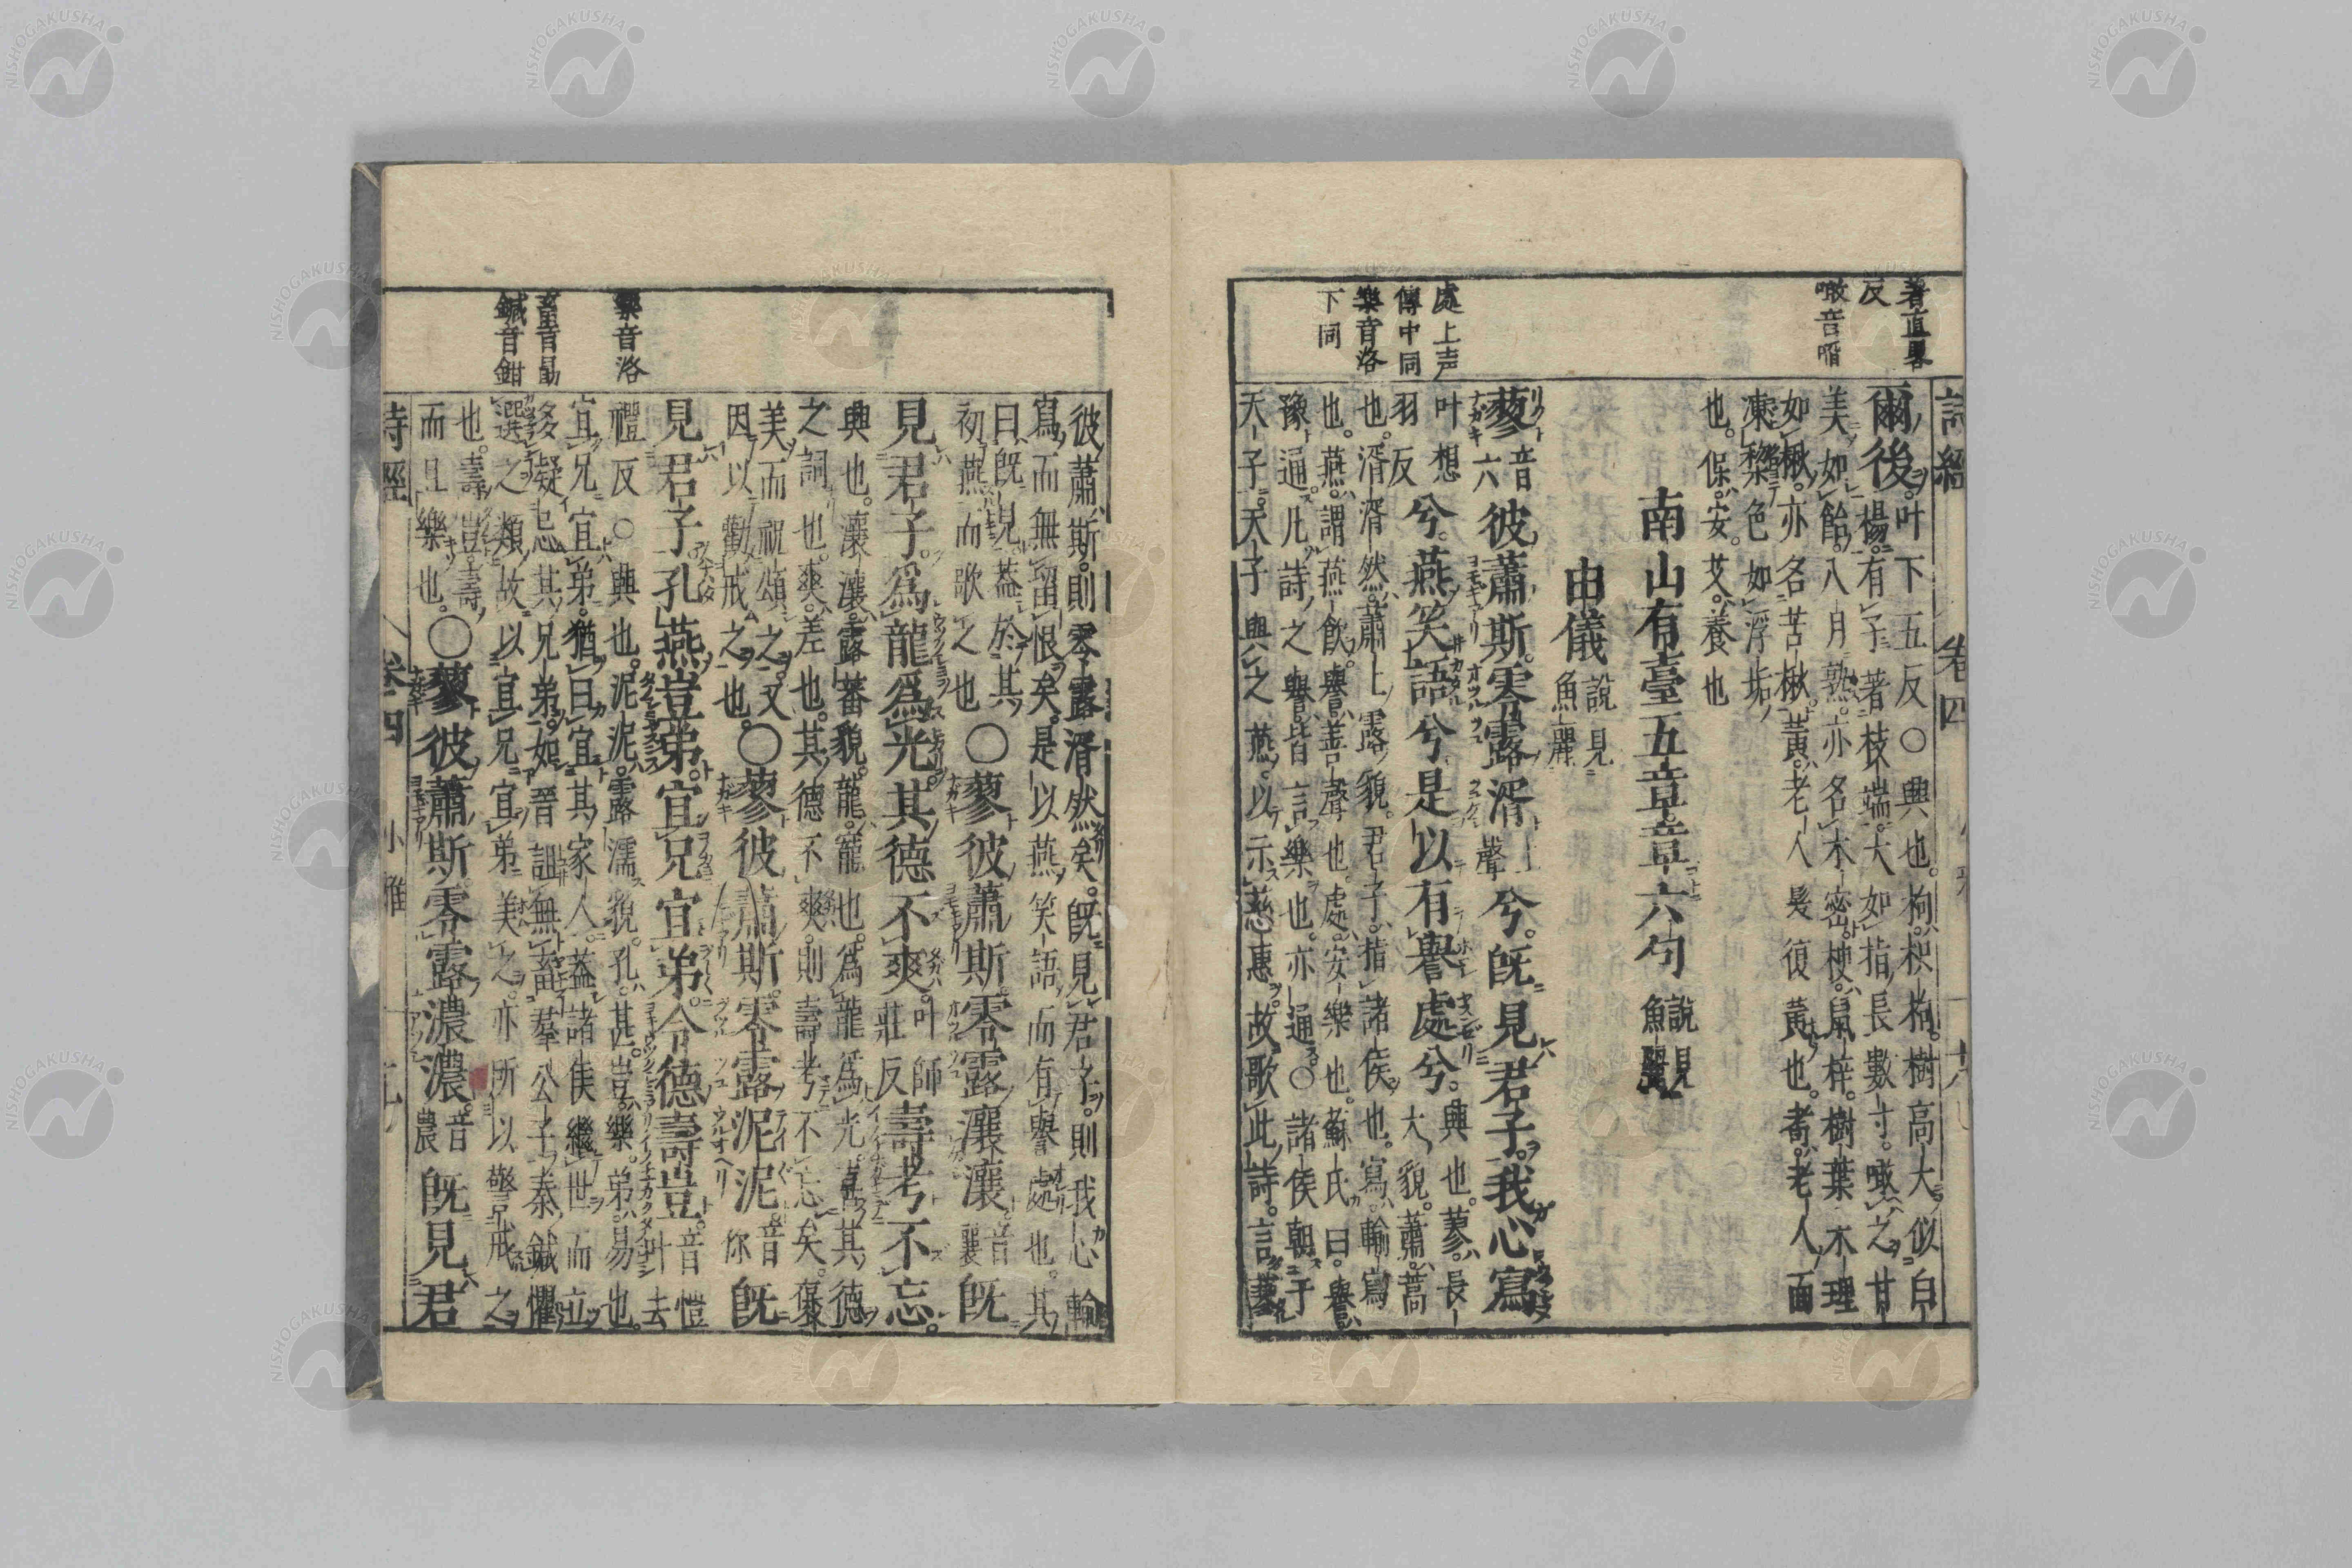 詩經 卷四
著直畧
反
噉音啗
處上声
傳中同
樂音洛
下同
爾後。叶下五反○興也。枸枳枸。樹高大似白
楊。有子著枝端。大如指長數寸。噉之甘
美如飴。八月熟。亦名木密。楰鼠梓。樹葉木理
如楸。亦名苦楸。黃老人髮復黃也。耉老人面
凍棃色如浮垢
也。保安。艾養也
南山有臺五章章六句 說見魚麗
由儀 說見魚麗
蓼音六彼蕭斯零露湑上聲兮。既見君子。我心寫
叶想羽反兮。燕笑語兮。是以有譽處兮。興也。蓼長大貌。蕭蒿
也。湑湑然。蕭上露貌。君子指諸侯也。寫輸寫
也。燕謂燕飲。譽善聲也。處安樂也。蘇氏曰。譽
豫通。凡詩之譽。皆言樂也。亦通。○諸侯朝于
天子。天子與之燕。以示慈惠。故歌此詩。言蓼
樂音洛
畜音勗
鍼音鉗
彼蕭斯。則零露湑然矣。既見君子。則我心輸
寫而無留恨矣。是以燕笑語而有譽處也。其
曰既見。蓋於其
初燕而歌之也○蓼彼蕭斯。零露瀼瀼。音襄既
見君子。爲龍爲光。其德不爽。叶師莊反壽考不忘。
興也。瀼瀼。露蕃貌。龍。寵也。爲龍爲光。喜其德
之詞也。爽。差也。其德不爽。則壽考不忘矣。褒
美而祝頌之。又
因以勸戒之也。○蓼彼蕭斯。零露泥泥。音你既
見君子孔燕豈弟。宜兄宜弟。令德壽豈。音愷叶去
禮反○興也。泥泥。露濡貌。孔。甚。豈樂。弟易也。
宜兄宜弟。猶曰宜其家人。蓋諸侯繼世而立
多疑忌其兄弟。如晉詛無畜羣公子。秦鍼懼
選之類。故以宜兄宜弟美之。亦所以警戒之
也。壽豈。壽
而且樂也。○蓼彼蕭斯零露濃濃。音農既見君
詩經 卷四 小雅